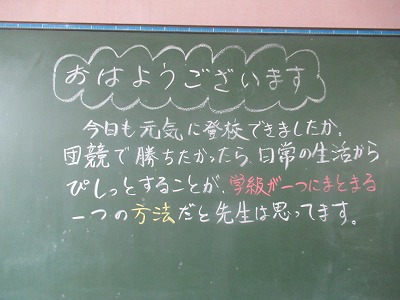 おはようございます
今日も元気に登校できましたか。
団競で勝ちたかったら、日常の生活から
ぴしっとすることが、学級が一つにまとまる
一つの方法だと先生は思ってます。